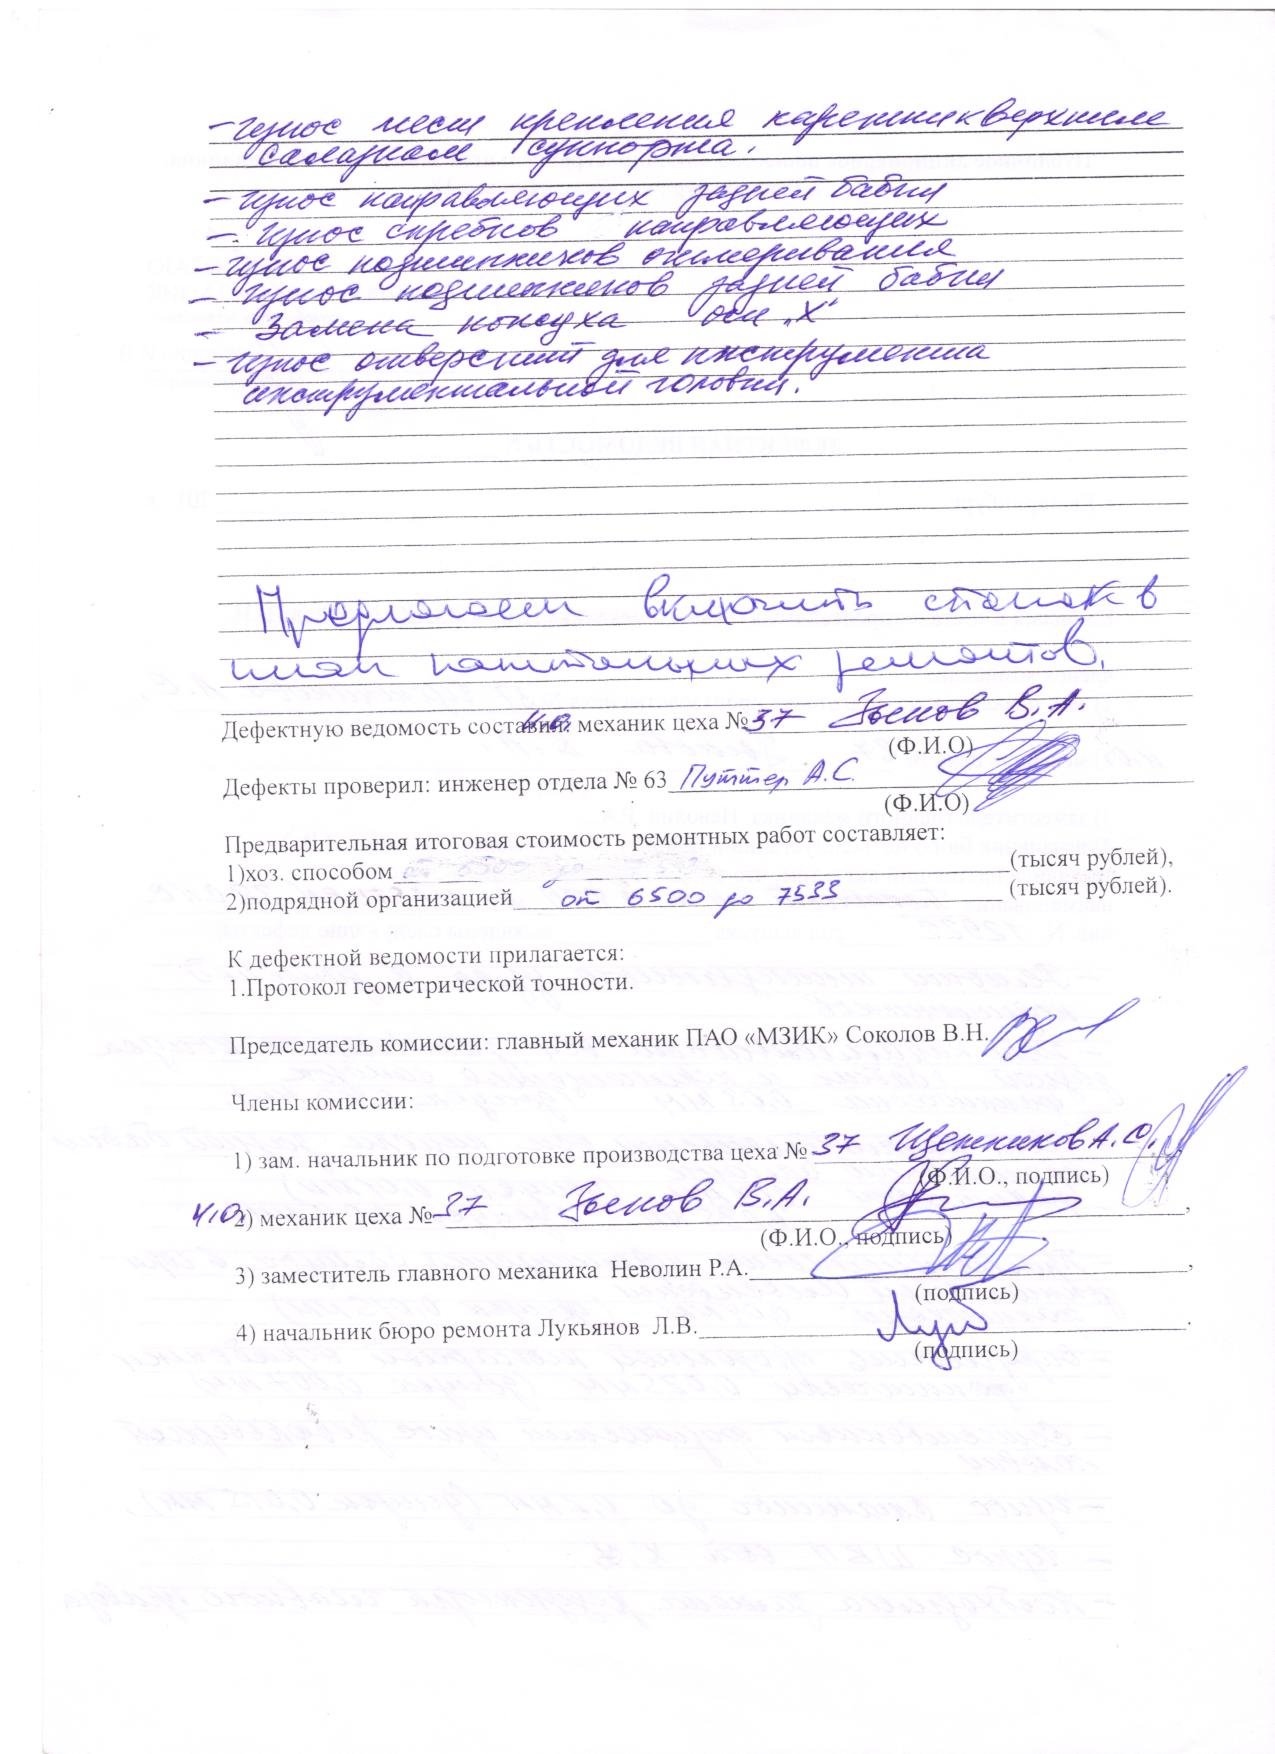 - Износ мест крепления каретки к верхним
салазкам суппорта.
- Износ направляющих задней бабки
- Износ скребков направляющих
- Износ подшипников
- Износ подшипников задней бабки
- Замена кожуха оси „Х"
- Износ отверстий для инструмента
инструментальной головки.
Предлагаем включить станок в
план капитальных ремонтов.
Дефектную ведомость составил: и.о. механик цеха № 37 Зыков В.А.
(Ф.И.О)
Дефекты проверил: инженер отдела № 63 Путтер А.С.
(Ф.И.О)
Предварительная итоговая стоимость ремонтных работ составляет:
1)хоз. способом от 6500 до (тысяч рублей),
2)подрядной организацией от 6500 до 7533 (тысяч рублей).
К дефектной ведомости прилагается:
1.Протокол геометрической точности.
Председатель комиссии: главный механик ПАО «МЗИК» Соколов В.Н.
Члены комиссии:
1) зам. начальник по подготовке производства цеха № 37 Щетников А.Ю.
(Ф.И.О., подпись)
И.О. 2) механик цеха № 37 Зыков В.А. ,
(Ф.И.О., подпись)
3) заместитель главного механика Неволин Р.А. ,
(подпись)
4) начальник бюро ремонта Лукьянов Л.В. .
(подпись)